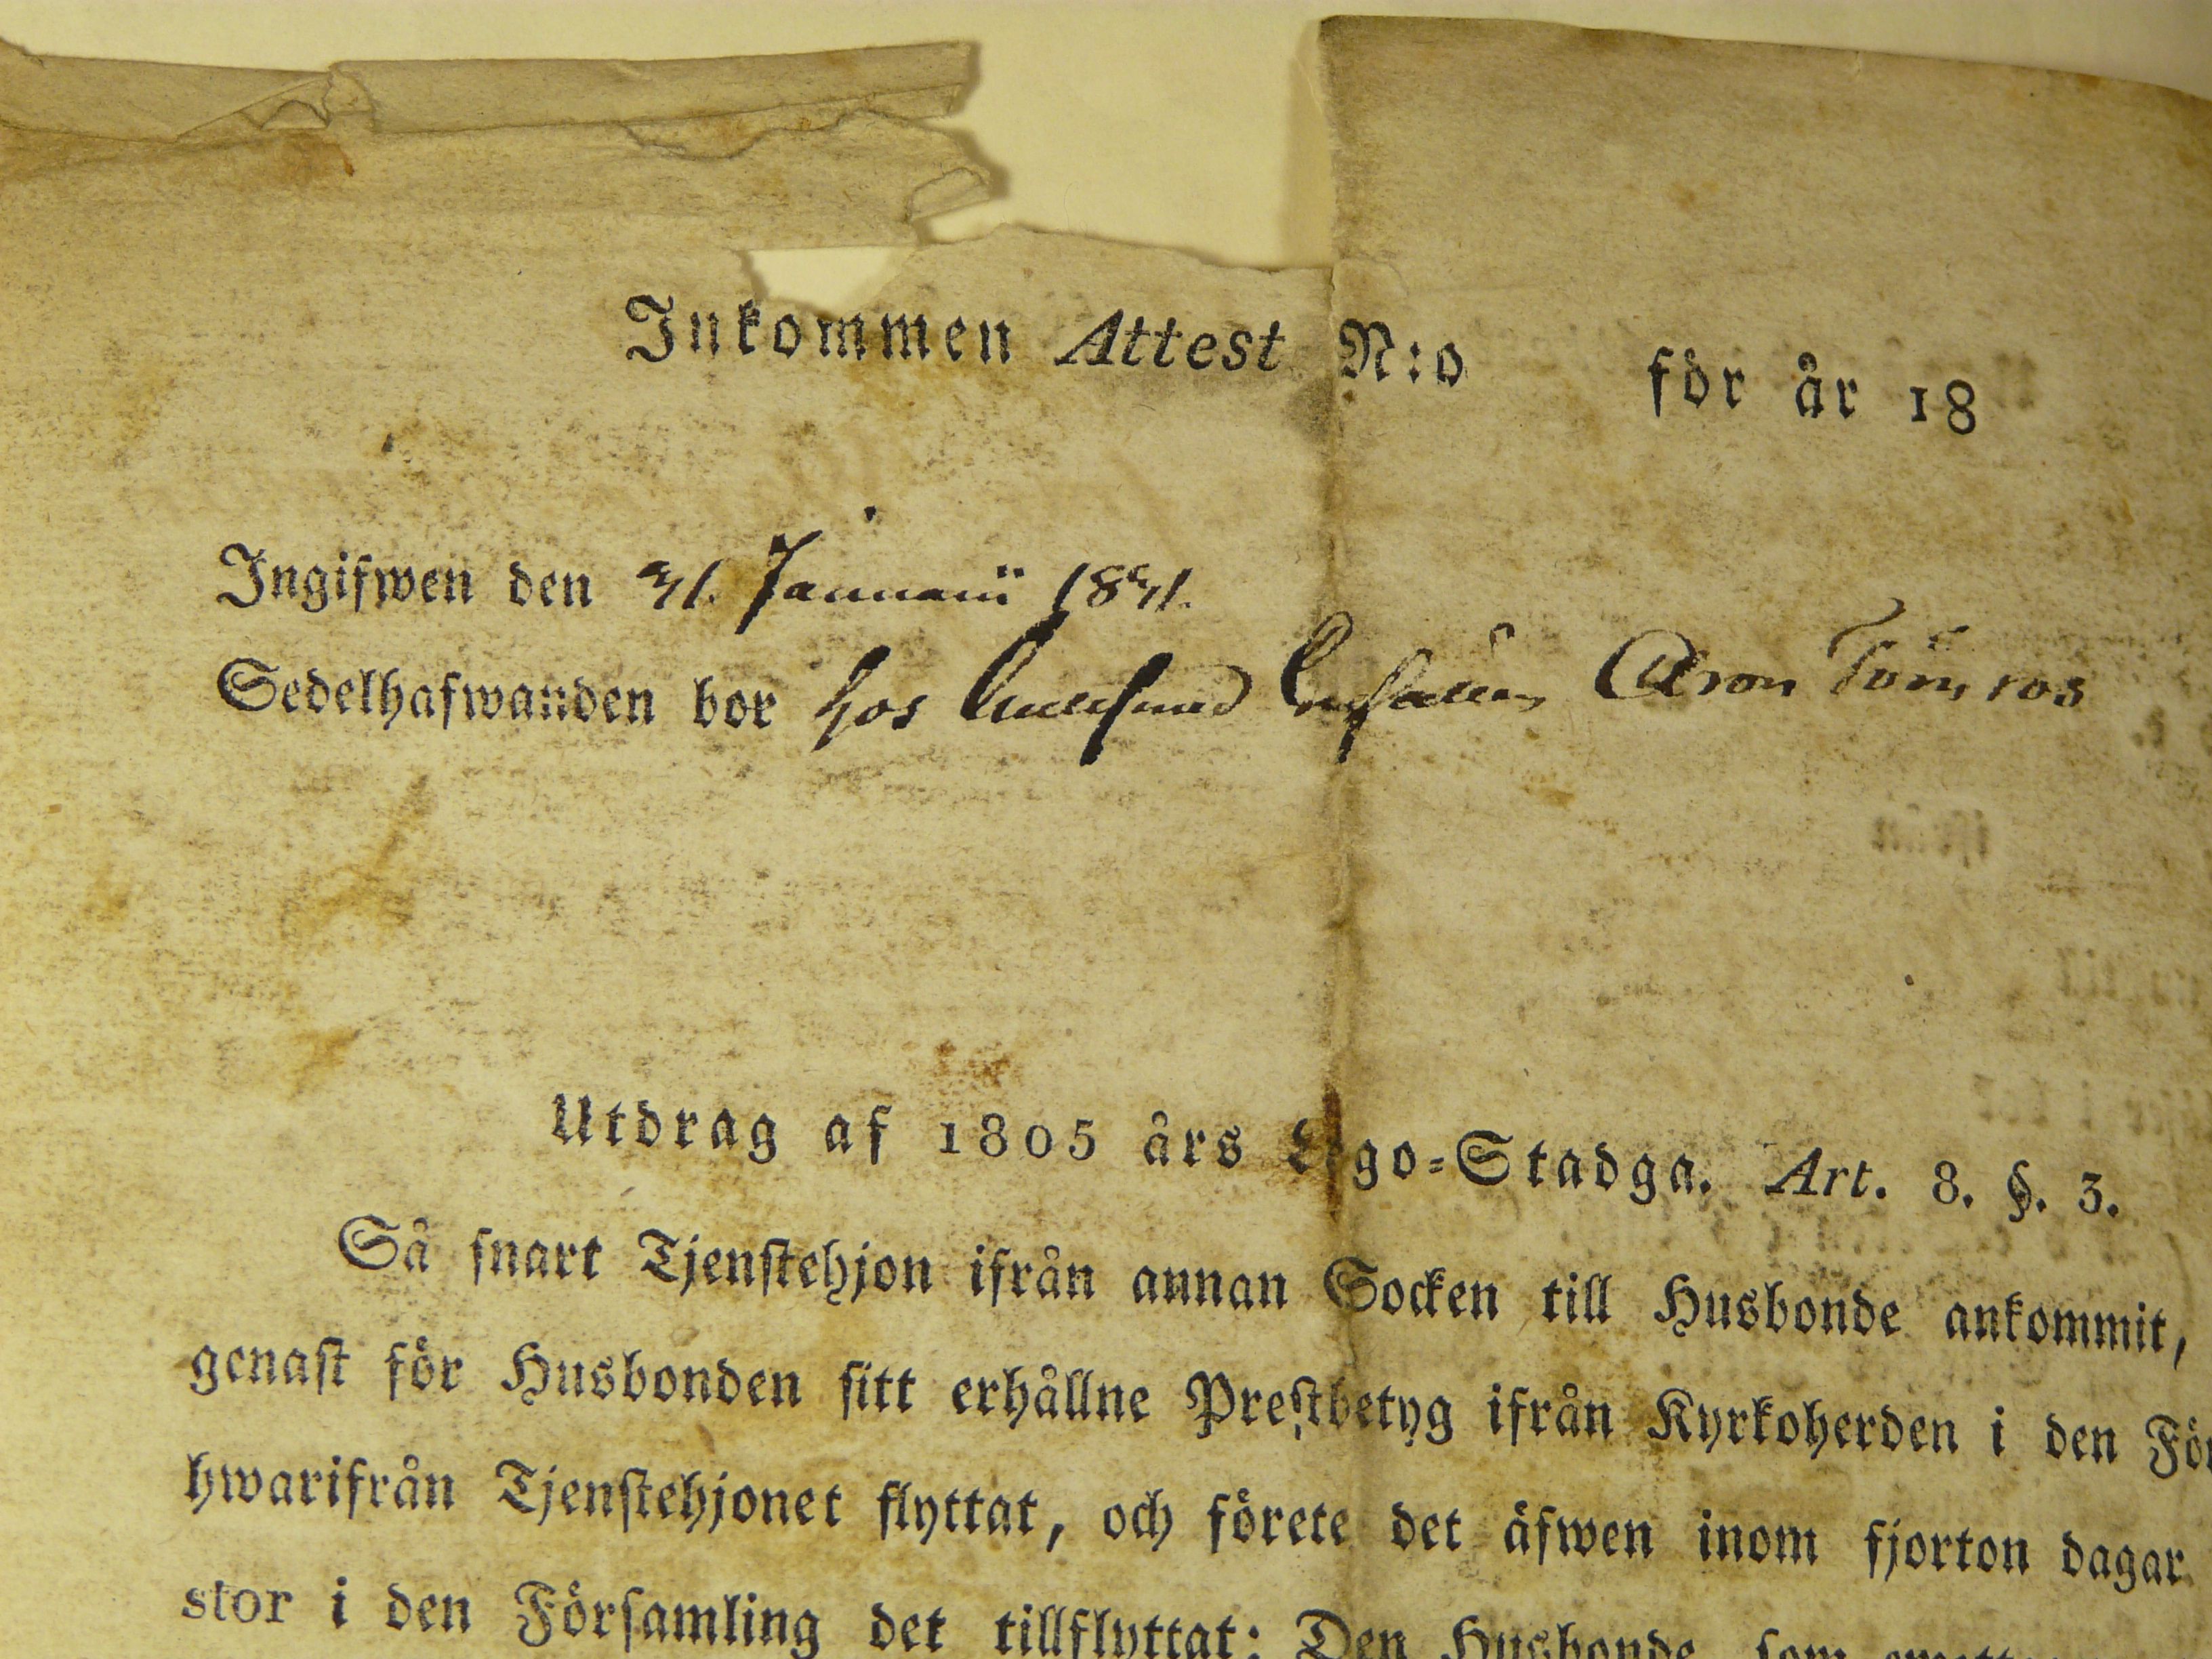 Inkommen Attest N:o för år 18
Ingifwen den 31. Januarii 1831.
Sedelhafwanden bor hos Aron Törnros
Utdrag af 1805 års Lego-Stadga. Art. 8. §. 3.
Så snart Tjenstehjon ifrån annan Socken till Husbonde ankommit,
genast för Husbonden sitt erhållne Prestbetyg ifrån Kyrkoherden i den För
hwarifrån Tjenstehjonet flyttat, och förete det äfwen inom fjorton dagar
stor i den Församling det tillflyttat: Den Husbonde, som